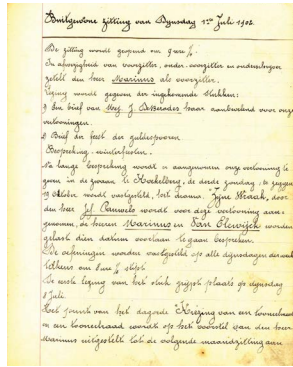 Buitgewone zitting van Dynsdag 1ste Juli 1902.
De zitting wordt geopend om 9 ure ½.
In afwezigheid van voorzitter, onder-voorzitter en ondersch
zetelt den heer Marinus als voorzitter.
Lezing wordt gegeven der ingekomende stukken:
1° Een brief van Mej. J. haar aanbiedend voor onze
vertooningen.
2° Brief der feest der guldensporen
Bespreking: winterfeesten.
Na lange bespreking wordt er aangenomen onze vertooning te
geven in de zwaan te Koekelberg, de derde zondag, te zeggen
19 October wordt vastgesteld, het drama: "Zyne Wraak, door
den heer Jef. Pauwels wordt voor deze vertooning aan-
genomen, de heeren Marinus en Van Olewyck worden
gelast dien datum voorloan te gaan bespreken.
De oefeningen worden vastgesteld op alle dynsdagen der week
telkens om 8 ure ½ stipt.
De eerste lezing van het stuk grypt plaats op dynsdag
8 Juli.
Het punt van het dagorde "Kiezing van een tooneelmeester
en een tooneelraad wordt op het voorstel van den heer
Marinus uitgesteld tot de volgende maandzitting aan